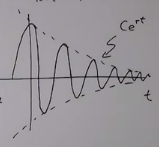 Ce^rt
t